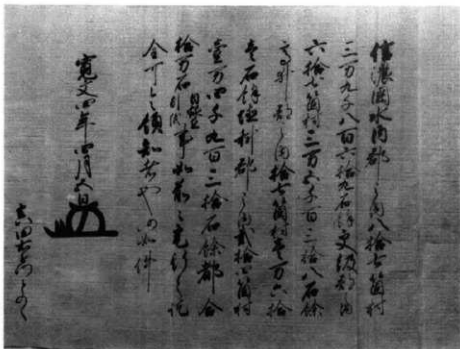 信濃国水内郡之内八拾七箇村
三万九千八百六拾九石余更級郡之内
六拾七箇村三万五千百三拾八石余
高井郡之内拾七箇村壱万六拾
壱石余埴科郡之内弐拾七箇村
壱万四千九百三拾石余都合
拾万石目録在別紙事如前々充行之訖
全可令領知者也仍如件
寛文四年四月五日
真田右衛門とのへ